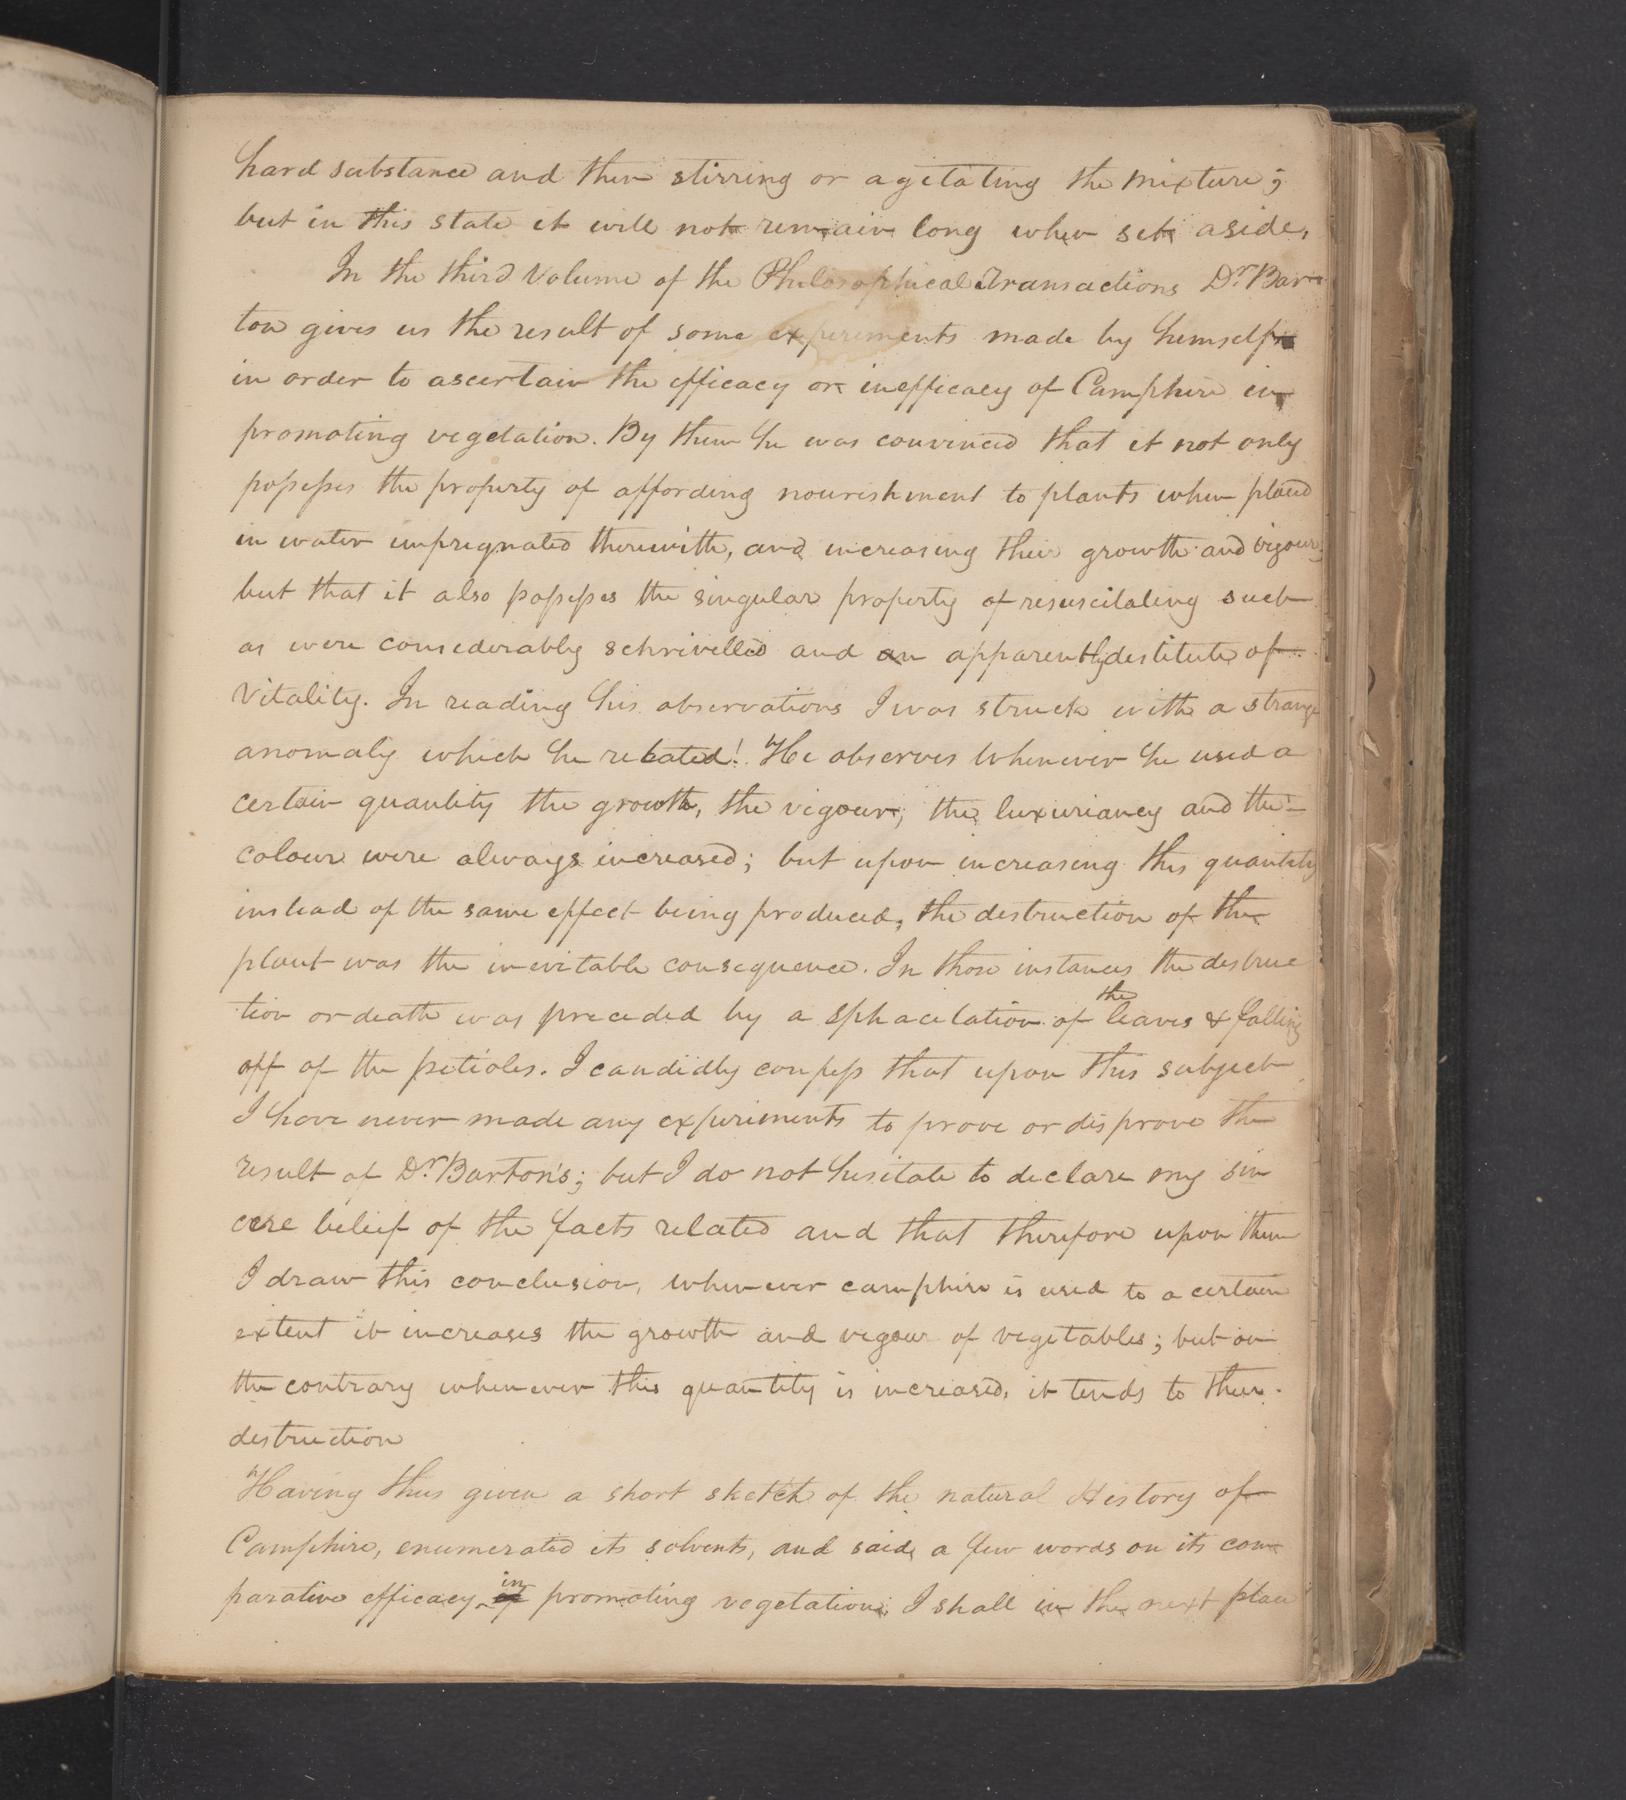 hard substance and then stirring or agetating the mixture;
but in this state it will not remain long when set aside,
In the third Volume of the Philosophical Transactions Dr. Bar-
ton gives us the result of some experiments made by himself
in order to ascertain the efficacy or inefficacy of Camphire in
promoting vegetation. By them he was convinced that it not only
possesses the property of affording nourishment to plants when placed
in water impregnated therewith, and increasing their growth and vigour,
but that it also possesses the singular property of resuscitating such
as were considerably schrivelled and an apparently destitute of
Vitality. In reading his observations I was struck with a strange
anomaly which he related! He observes whenever he used a
certain quantity the growth, the vigour, the luxuriancy and the
colour were always increased; but upon increasing this quantity
instead of the same effect being produced, the destruction of the
plant was the inevitable consequence. In those instances the destruc
tion or death was preceded by a sphacelation of the leaves & falling
off of the petioles. I candidly confess that upon this subject
I have never made any experiments to prove or disprove the
result of Dr. Barton's; but I do not hesitate to declare my sin
cere belief of the facts related and that therefore upon them
I draw this conclusion, whenever camphire is used to a certain
extent it increases the growth and vigour of vegetables; but on
the contrary whenever this quantity is increased, it tends to their
destruction
Having thus given a short sketch of the natural History of
Camphire, enumerated its solvents, and said a few words on its com
parative efficacy of in promoting vegetation; I shall in the next place